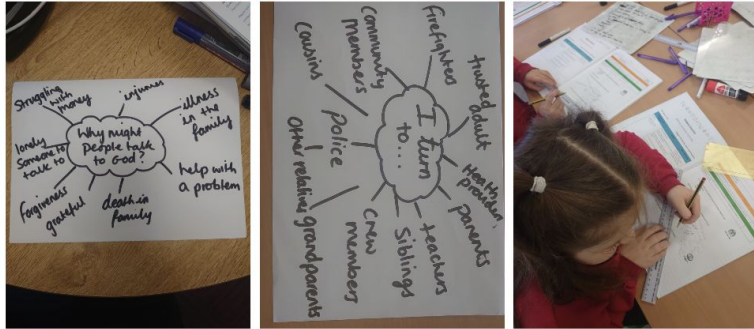 Why might
people talk
to God?
injuries
illness
in the
family
help with
a problem
death in
family
grateful
Forgiveness
lonely
Someone to
talk to
Struggling
with
money
I turn
to...
firefighters
trusted
adult
Health
provider.
parents
teachers
Siblings
crew
members
grandparents
other relatives
Police
cousins
community
members